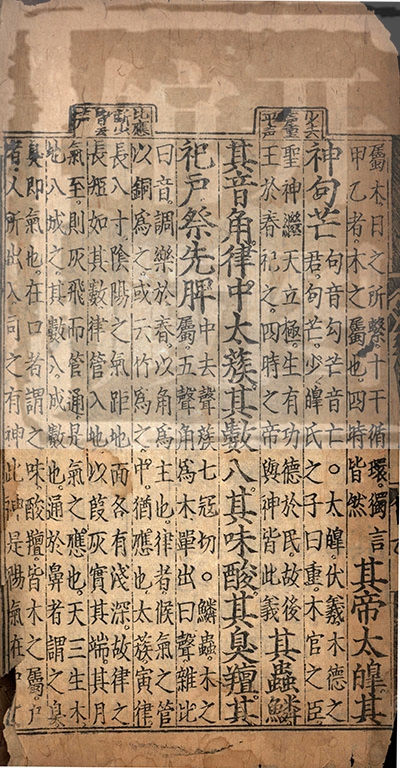 屬木日之所繫十干循環獨言
甲乙者木之屬也四時皆然
其帝太皥其
神句芒
句音勾芒音亡○太皥伏羲木德之
君句芒少皥氏之子曰重木官之臣
聖神繼天立極生有功德於民故後
王於春祀之四時之帝與神皆此義
其蟲鱗
其音角律中太蔟其數八其味酸其臭羶其
祀戶祭先脾
中去聲蔟七冠切○鱗蟲木之
屬五聲角為木單出曰聲雜比
曰音調樂於春以角為主也律者候氣之管
以銅為之或云竹為之中猶應也太蔟寅律
長八寸陰陽之氣距地而各有淺深故律之
長短如其數律管入地以葭灰實其端其月
氣至則灰飛而管通是氣之應也天三生木
地八成之其數八成數也通於鼻者謂之臭
臭即氣也在口者謂之味酸羶皆木之屬戶
者人所出入司之有神此神是陽氣在